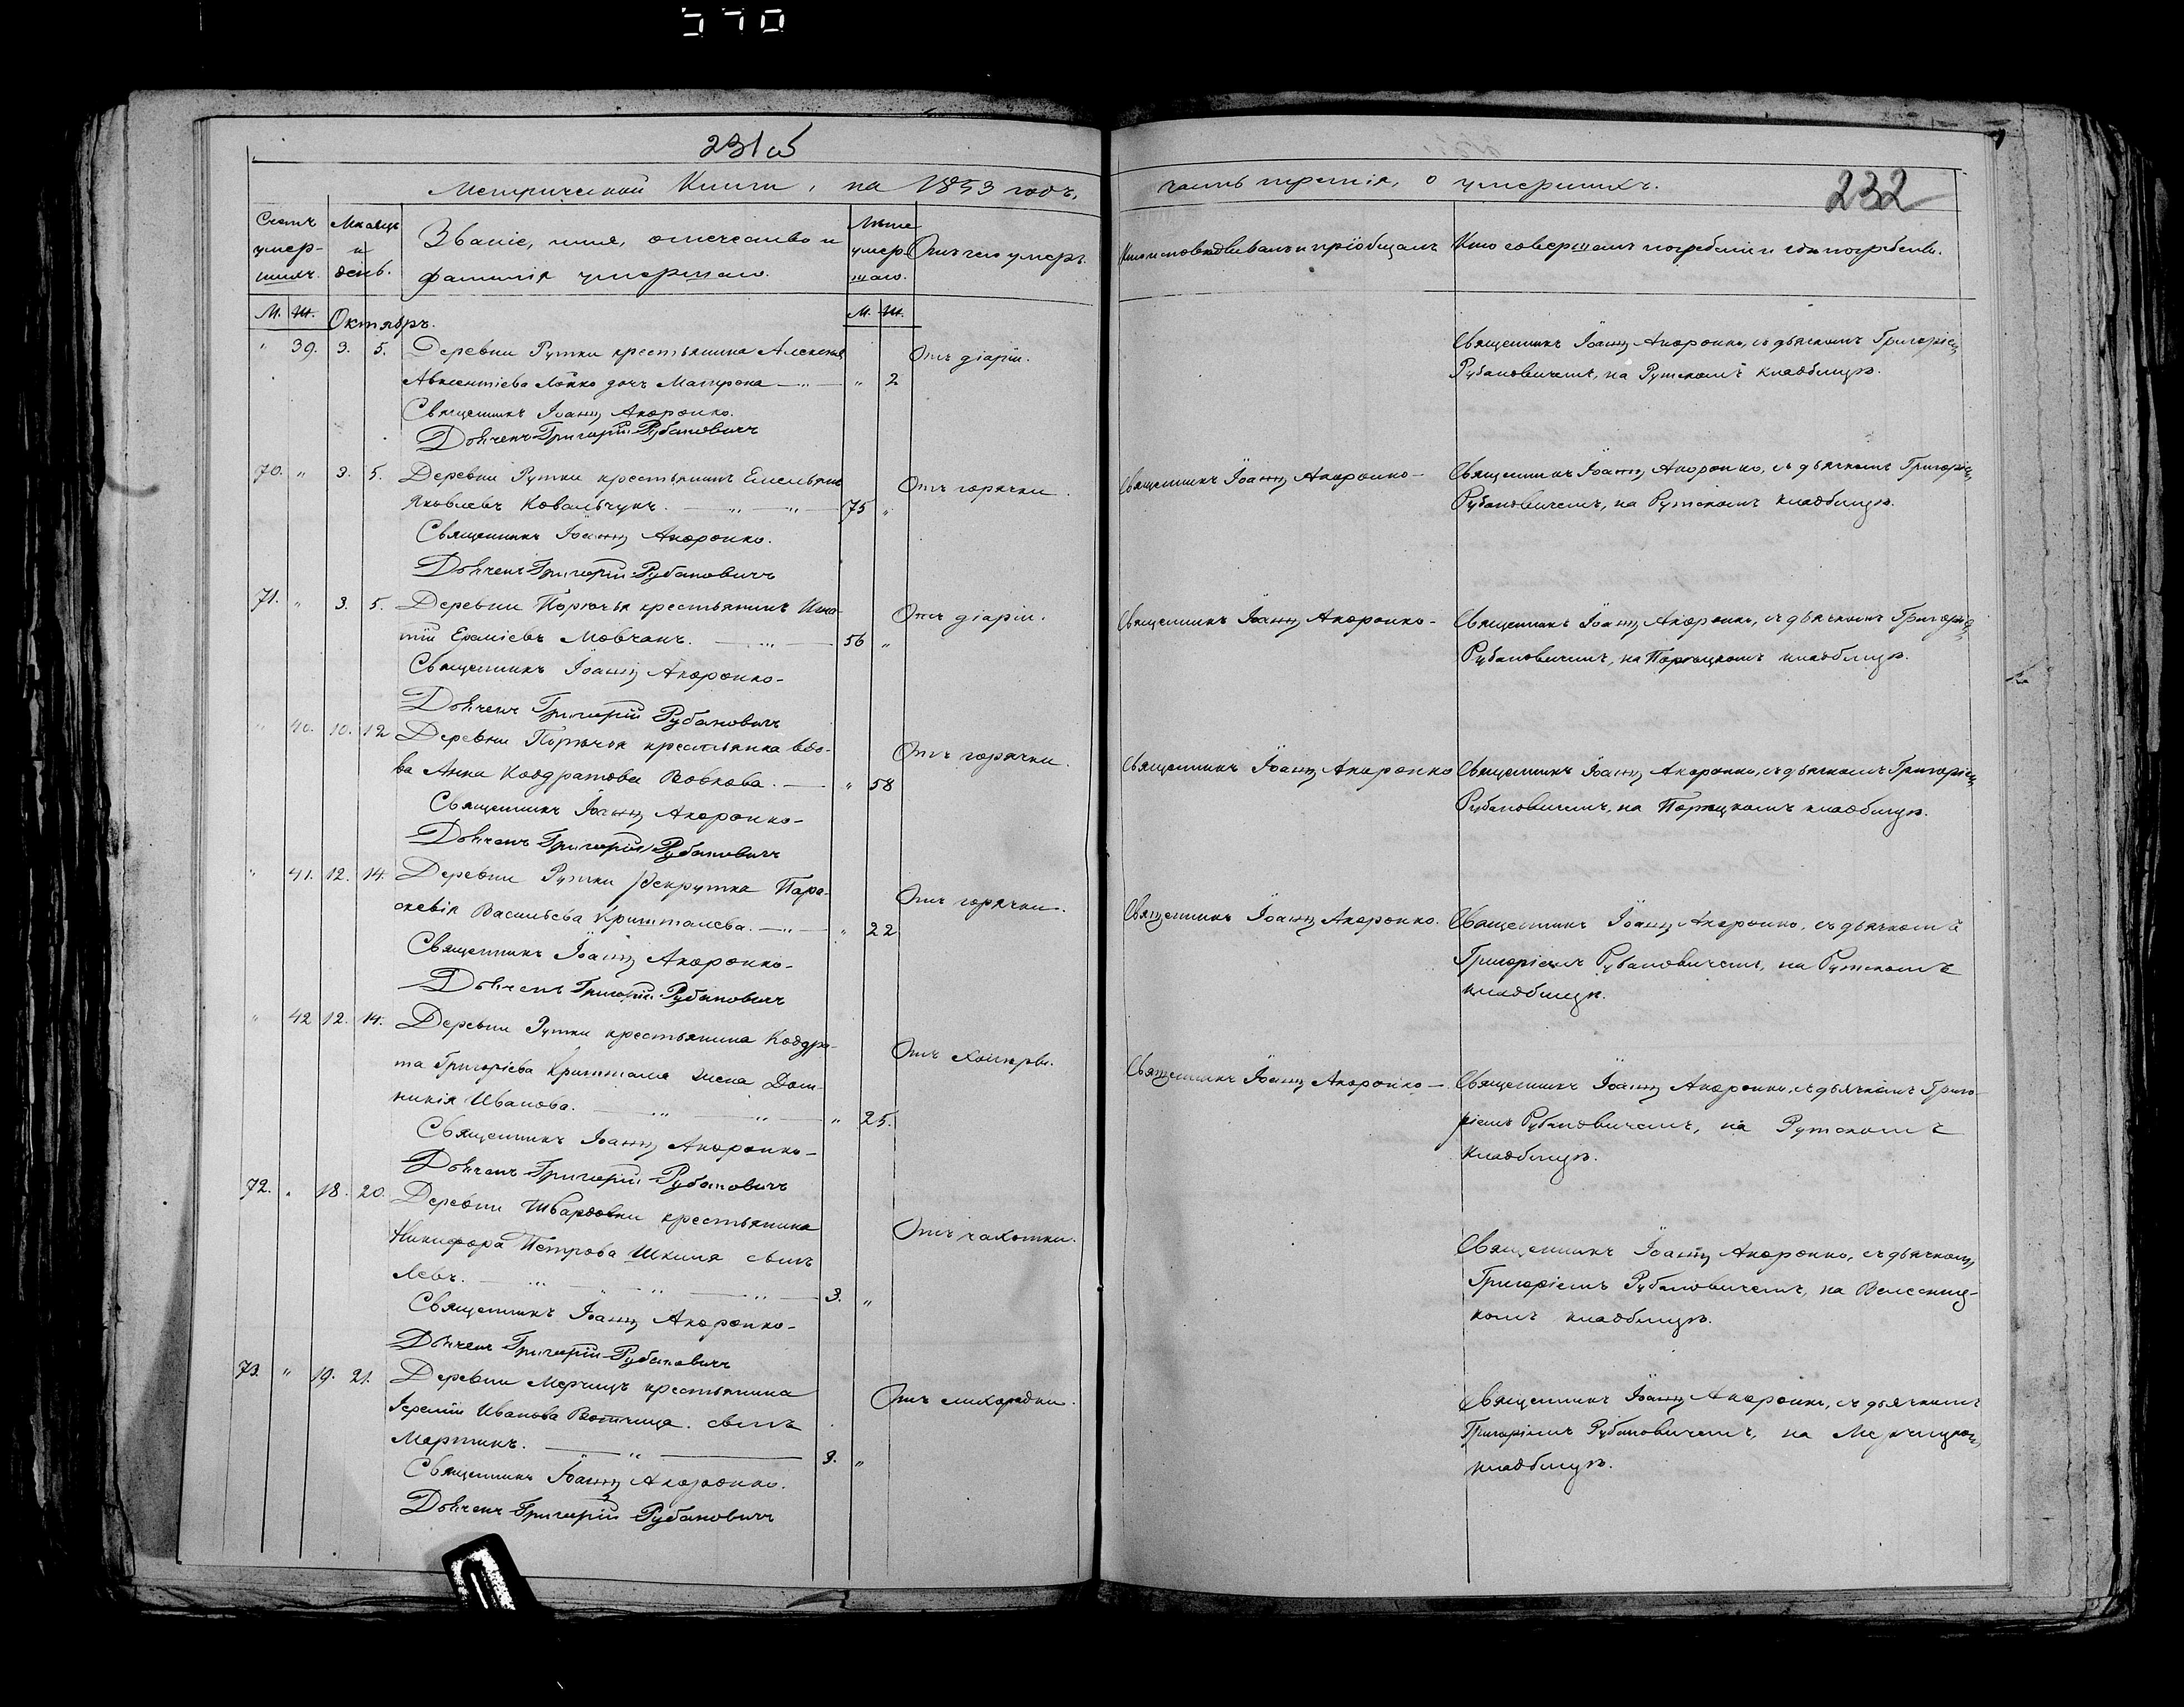 370
231 об
232
Метрической Книги, на 1853 годъ,
часть третія, о умершихъ.
Счетъ умер-шихъ.
Мѣсяцъ и день.
Званіе, имя, отечество и фамилія умершаго.
Лѣта умер-шаго.
Отъ чего умеръ.
Кто исповѣдывалъ и пріобщалъ
Кто совершалъ погребеніе и гдѣ погребены.
М. Ж. Октябрь. М. Ж.
" 39. 3. 5. Деревни Рутки крестьянина Алексея
Отъ діаріи.
Авксентіева дочь Матрона " 2
Священникъ Іоаннъ
Дьячекъ Григорій Рубановичъ
Священникъ Іоаннъ съ дьячкомъ Григоріемъ
Рубановичемъ, на Рутскомъ кладбищѣ.
70. " 3. 5. Деревни Рутки крестьянинъ Емельянъ
Отъ горячки.
Яковлевъ Ковальчукъ. 75 "
Священникъ Іоаннъ
Дьячекъ Григорій Рубановичъ
Священникъ Іоаннъ
Священникъ Іоаннъ съ дьячкомъ Григоріемъ
Рубановичемъ, на Рутскомъ кладбищѣ.
71. " 3. 5. Деревни Порѣчья крестьянинъ Игна-
Отъ діаріи.
тій Мовчанъ. 56 "
Священникъ Іоаннъ
Дьячекъ Григорій Рубановичъ
Священникъ Іоаннъ
Священникъ Іоаннъ съ дьячкомъ Григоріемъ
Рубановичемъ, на кладбищѣ.
" 40. 10. 12 Деревни Порѣчья крестьянка вдо-
Отъ горячки.
ва Анна Кондратова Вовкова. " 58
Священникъ Іоаннъ
Дьячекъ Григорій Рубановичъ
Священникъ Іоаннъ
Священникъ Іоаннъ съ дьячкомъ Григоріемъ
Рубановичемъ, на кладбищѣ.
" 41. 12. 14. Деревни Рутки рекрутка Пара-
Отъ горячки.
скевія Васильева Кришталева. " 22
Священникъ Іоаннъ
Дьячекъ Григорій Рубановичъ
Священникъ Іоаннъ
Священникъ Іоаннъ съ дьячкомъ
Григоріемъ Рубановичемъ, на Рутскомъ
кладбищѣ.
" 42 12. 14. Деревни Рутки крестьянина Кондра-
Отъ холеры.
та Григоріева Кришталя жена Дом-
никія Иванова. " 25.
Священникъ Іоаннъ
Дьячекъ Григорій Рубановичъ
Священникъ Іоаннъ
Священникъ Іоаннъ съ дьячкомъ Григо-
ріемъ Рубановичемъ, на Рутскомъ
кладбищѣ.
72. " 18. 20. Деревни крестьянина
Отъ чахотки.
Никифора Петрова Шкиля сынъ
Левъ. 3. "
Священникъ Іоаннъ
Дьячекъ Григорій Рубановичъ
Священникъ Іоаннъ съ дьячкомъ
Григоріемъ Рубановичемъ, на
комъ кладбищѣ.
73. " 19. 21. Деревни крестьянина
Отъ лихорадки.
Іереміи Иванова сынъ
Мартинъ. 3. "
Священникъ Іоаннъ
Дьячекъ Григорій Рубановичъ
Священникъ Іоаннъ съ дьячкомъ
Григоріемъ Рубановичемъ, на
кладбищѣ.